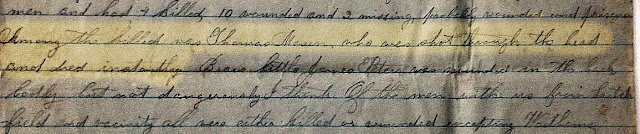 men and had 4 killed, 10 wounded and 2 missing, probably wounded and prisoner
Among the killed was Thomas Mosen who was shot through the head
and died instantly. Brave little James was wounded in the back
badly but not dangerously I think. Of the men with us from
field and vicinity all were either killed or wounded excepting